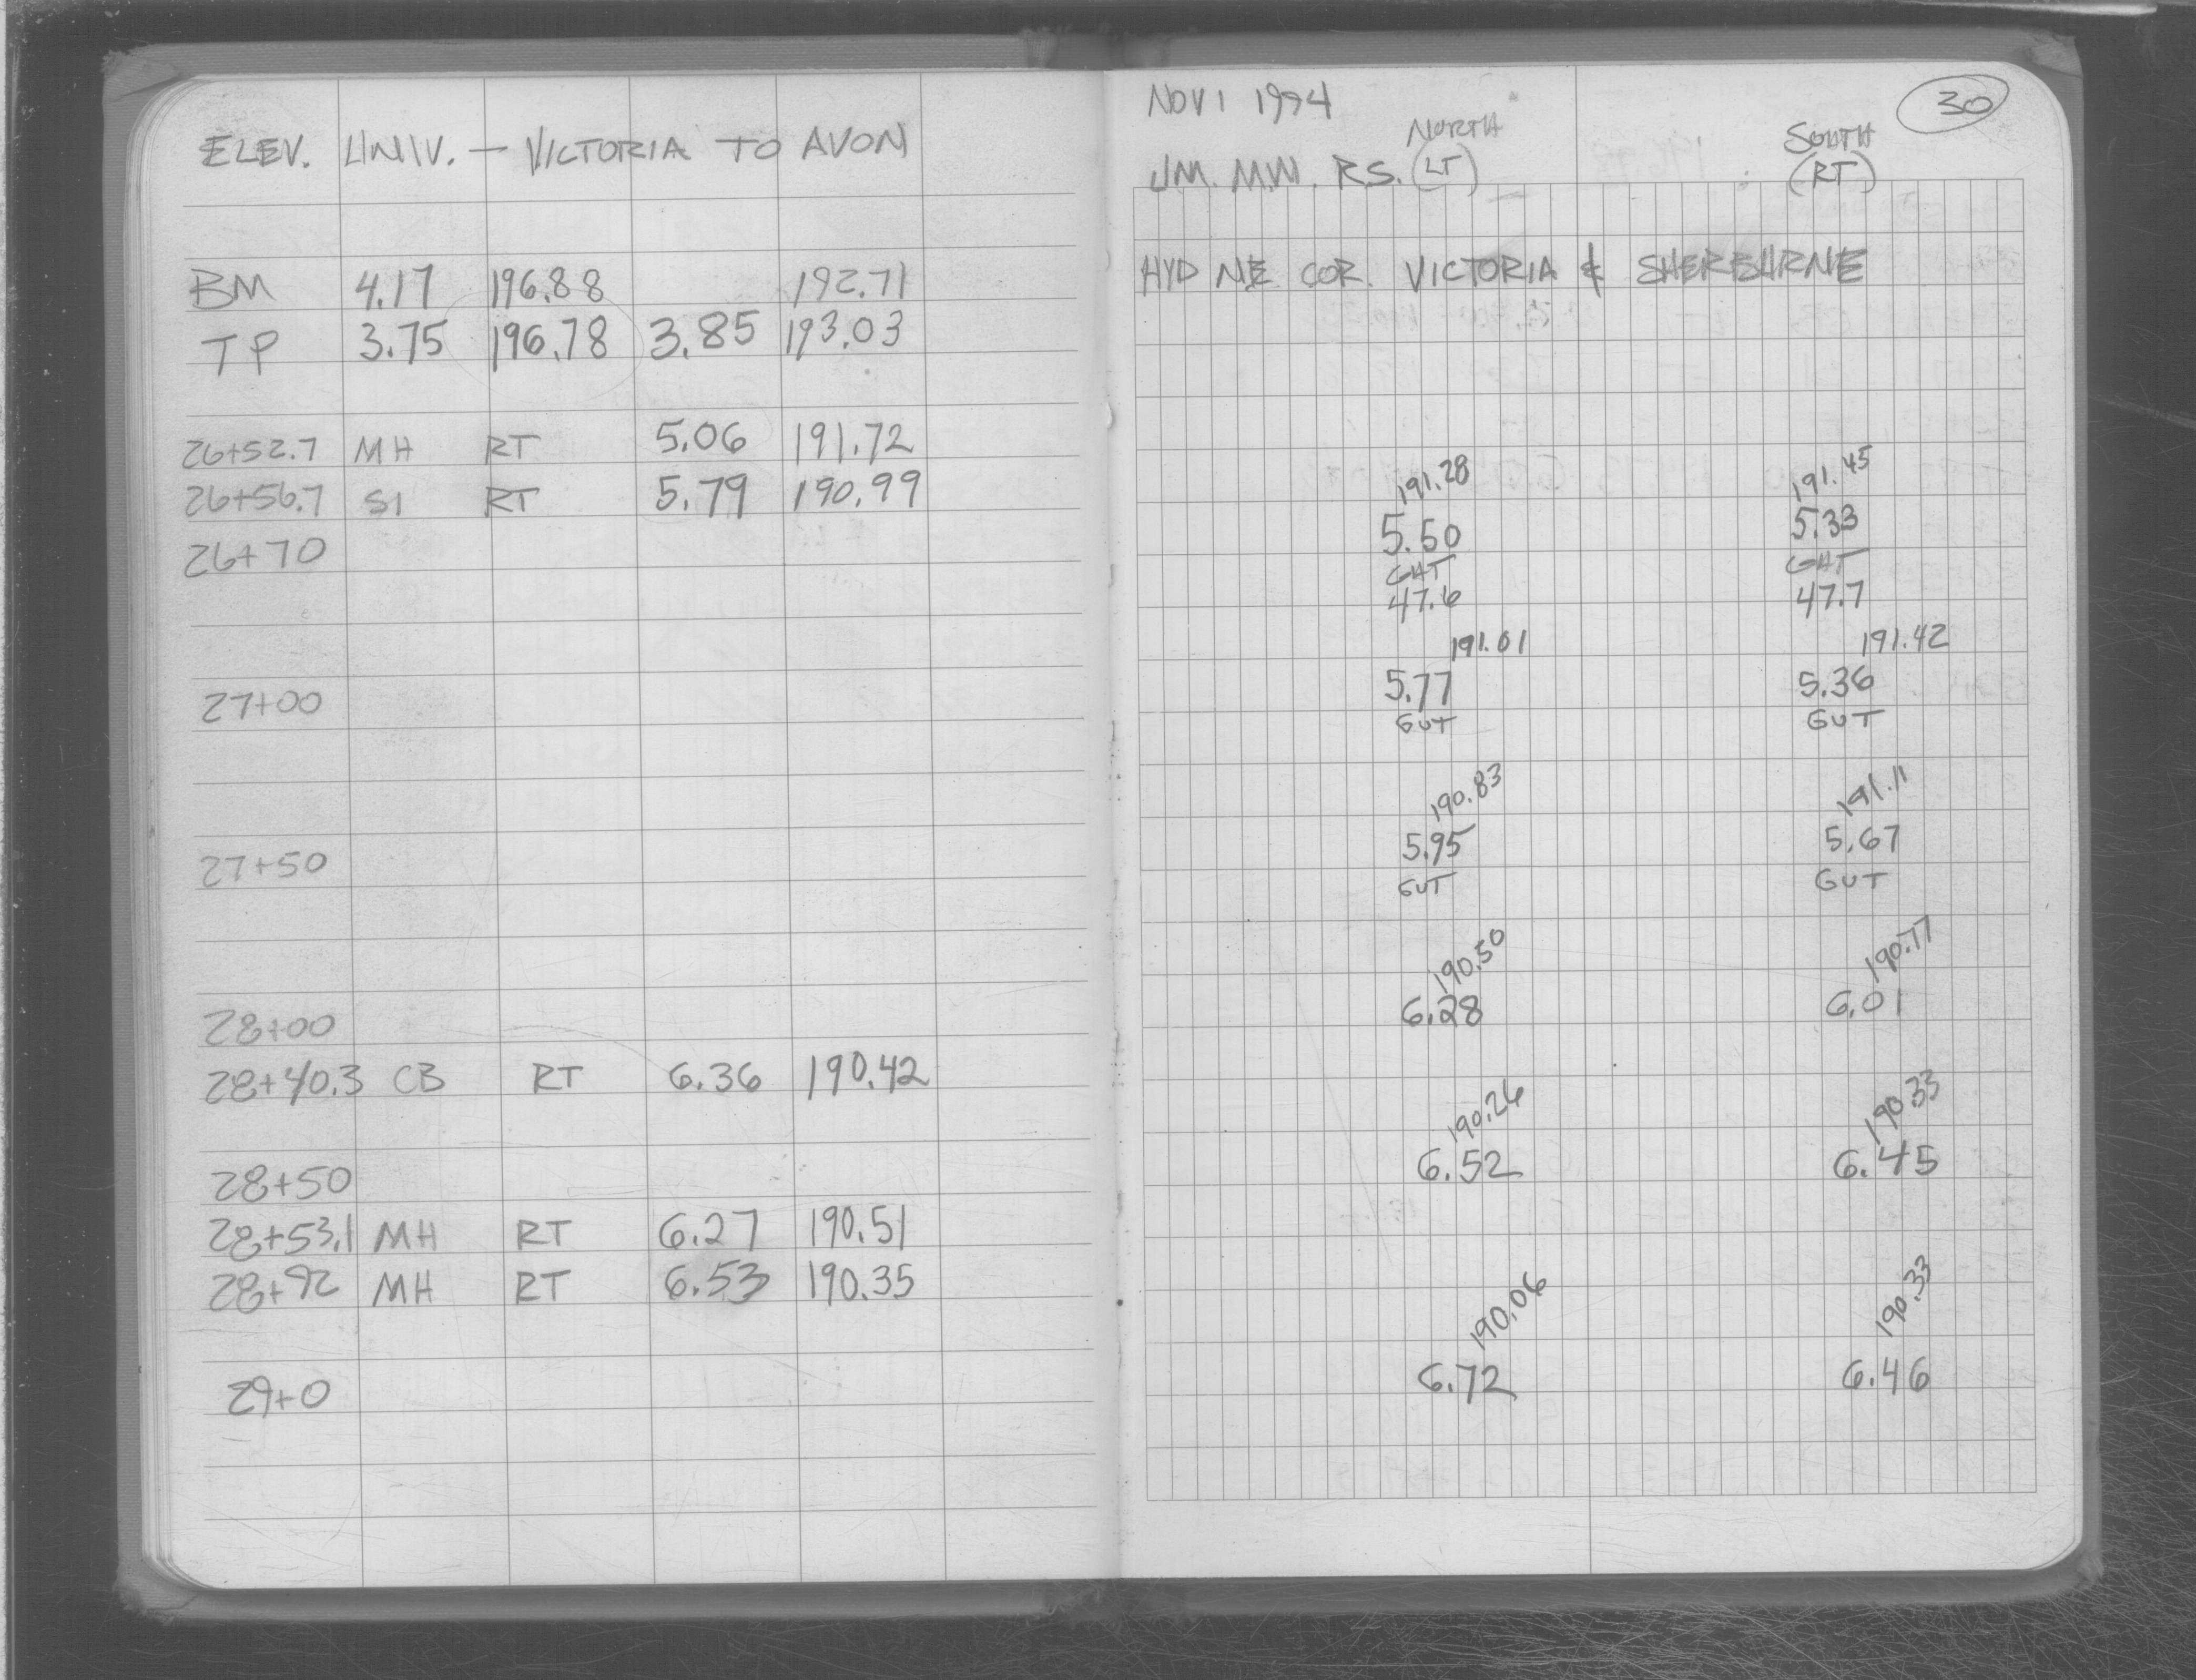 ELEV. UNIV. - VICTORIA TO AVON
BM 4.17 196.88 192.71
TP 3.75 196.78 3.85 193.03
26+52.7 MH RT 5.06 191.72
26+56.7 SI RT 5.79 190.99
26+70
27+00
27+50
28+00
28+40.3 CB RT 6.36 190.42
28+50
28+53.1 MH RT 6.27 190.51
28+92 MH RT 6.53 190.35
29+0
NOV 1 1994
30
NORTH SOUTH
JM. M.W. RS. (LT) (RT)
HYD NE COR. VICTORIA & SHERBURNE
191.28 191.45
5.50 5.33
GUT GUT
47.6 47.7
191.01 191.42
5.77 5.36
GUT GUT
190.83 191.11
5.95 5.67
GUT GUT
190.50 190.77
6.28 6.01
190.26 190.33
6.52 6.45
190.06 190.33
6.72 6.46